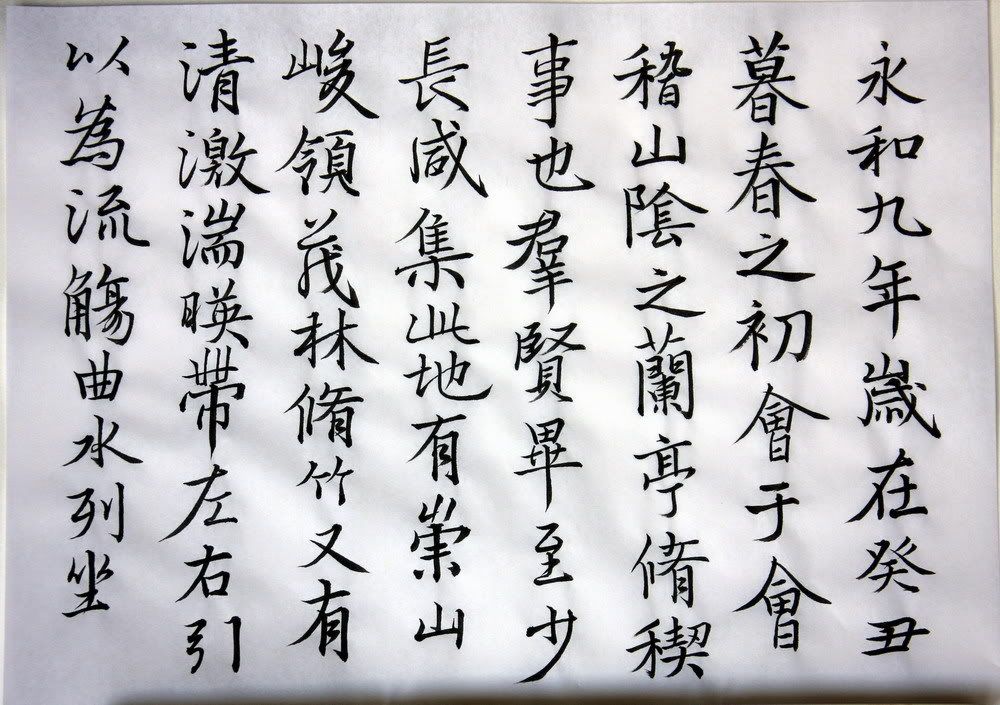 永和九年歲在癸丑
暮春之初會于會
稽山陰之蘭亭脩稧
事也羣賢畢至少
長咸集此地有崇山
峻領茂林脩竹又有
清激湍暎帶左右引
以為流觴曲水列坐